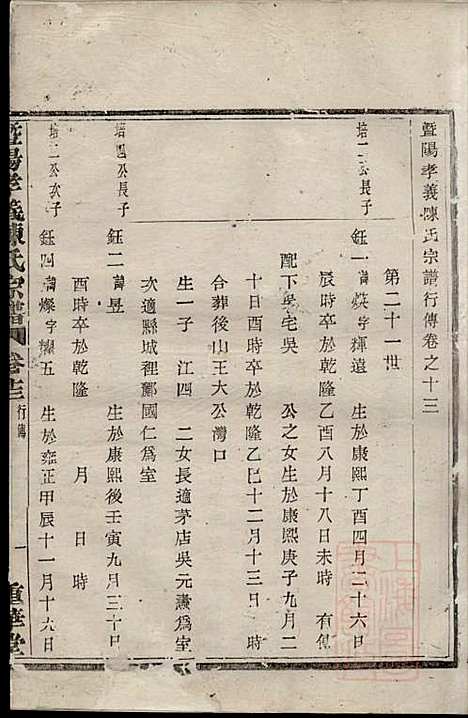 暨陽孝義陳氏宗譜行傳卷之十三
第二十一世
培二公長子
鈺一 諱 字揮遠 生於康熙丁酉四月二十六日
辰時卒於乾隆乙酉八月十八日未時 有傳
配下吳宅吳 公之女生於康熙庚子九月二
十日酉時卒於乾隆乙巳十二月十三日 時
合葬後山王大公灣口
生一子 江四 二女長適茅店吳元 為室
次適縣城裡酈國仁為室
培四公長子
鈺二 諱昱 生於康熙後壬寅九月三十日
酉時卒於乾隆 月 日 時
培二公次子
鈺四 諱燦字 五 生於雍正甲辰十一月十六日
暨陽孝義陳氏宗譜 卷十三 行傳 一 重華堂